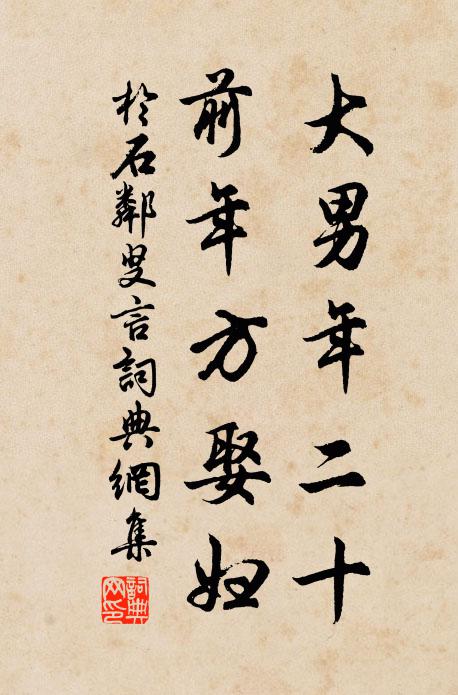 大男年二十
前年方娶妇
於石鄰叟言詞典網集
詞典網印